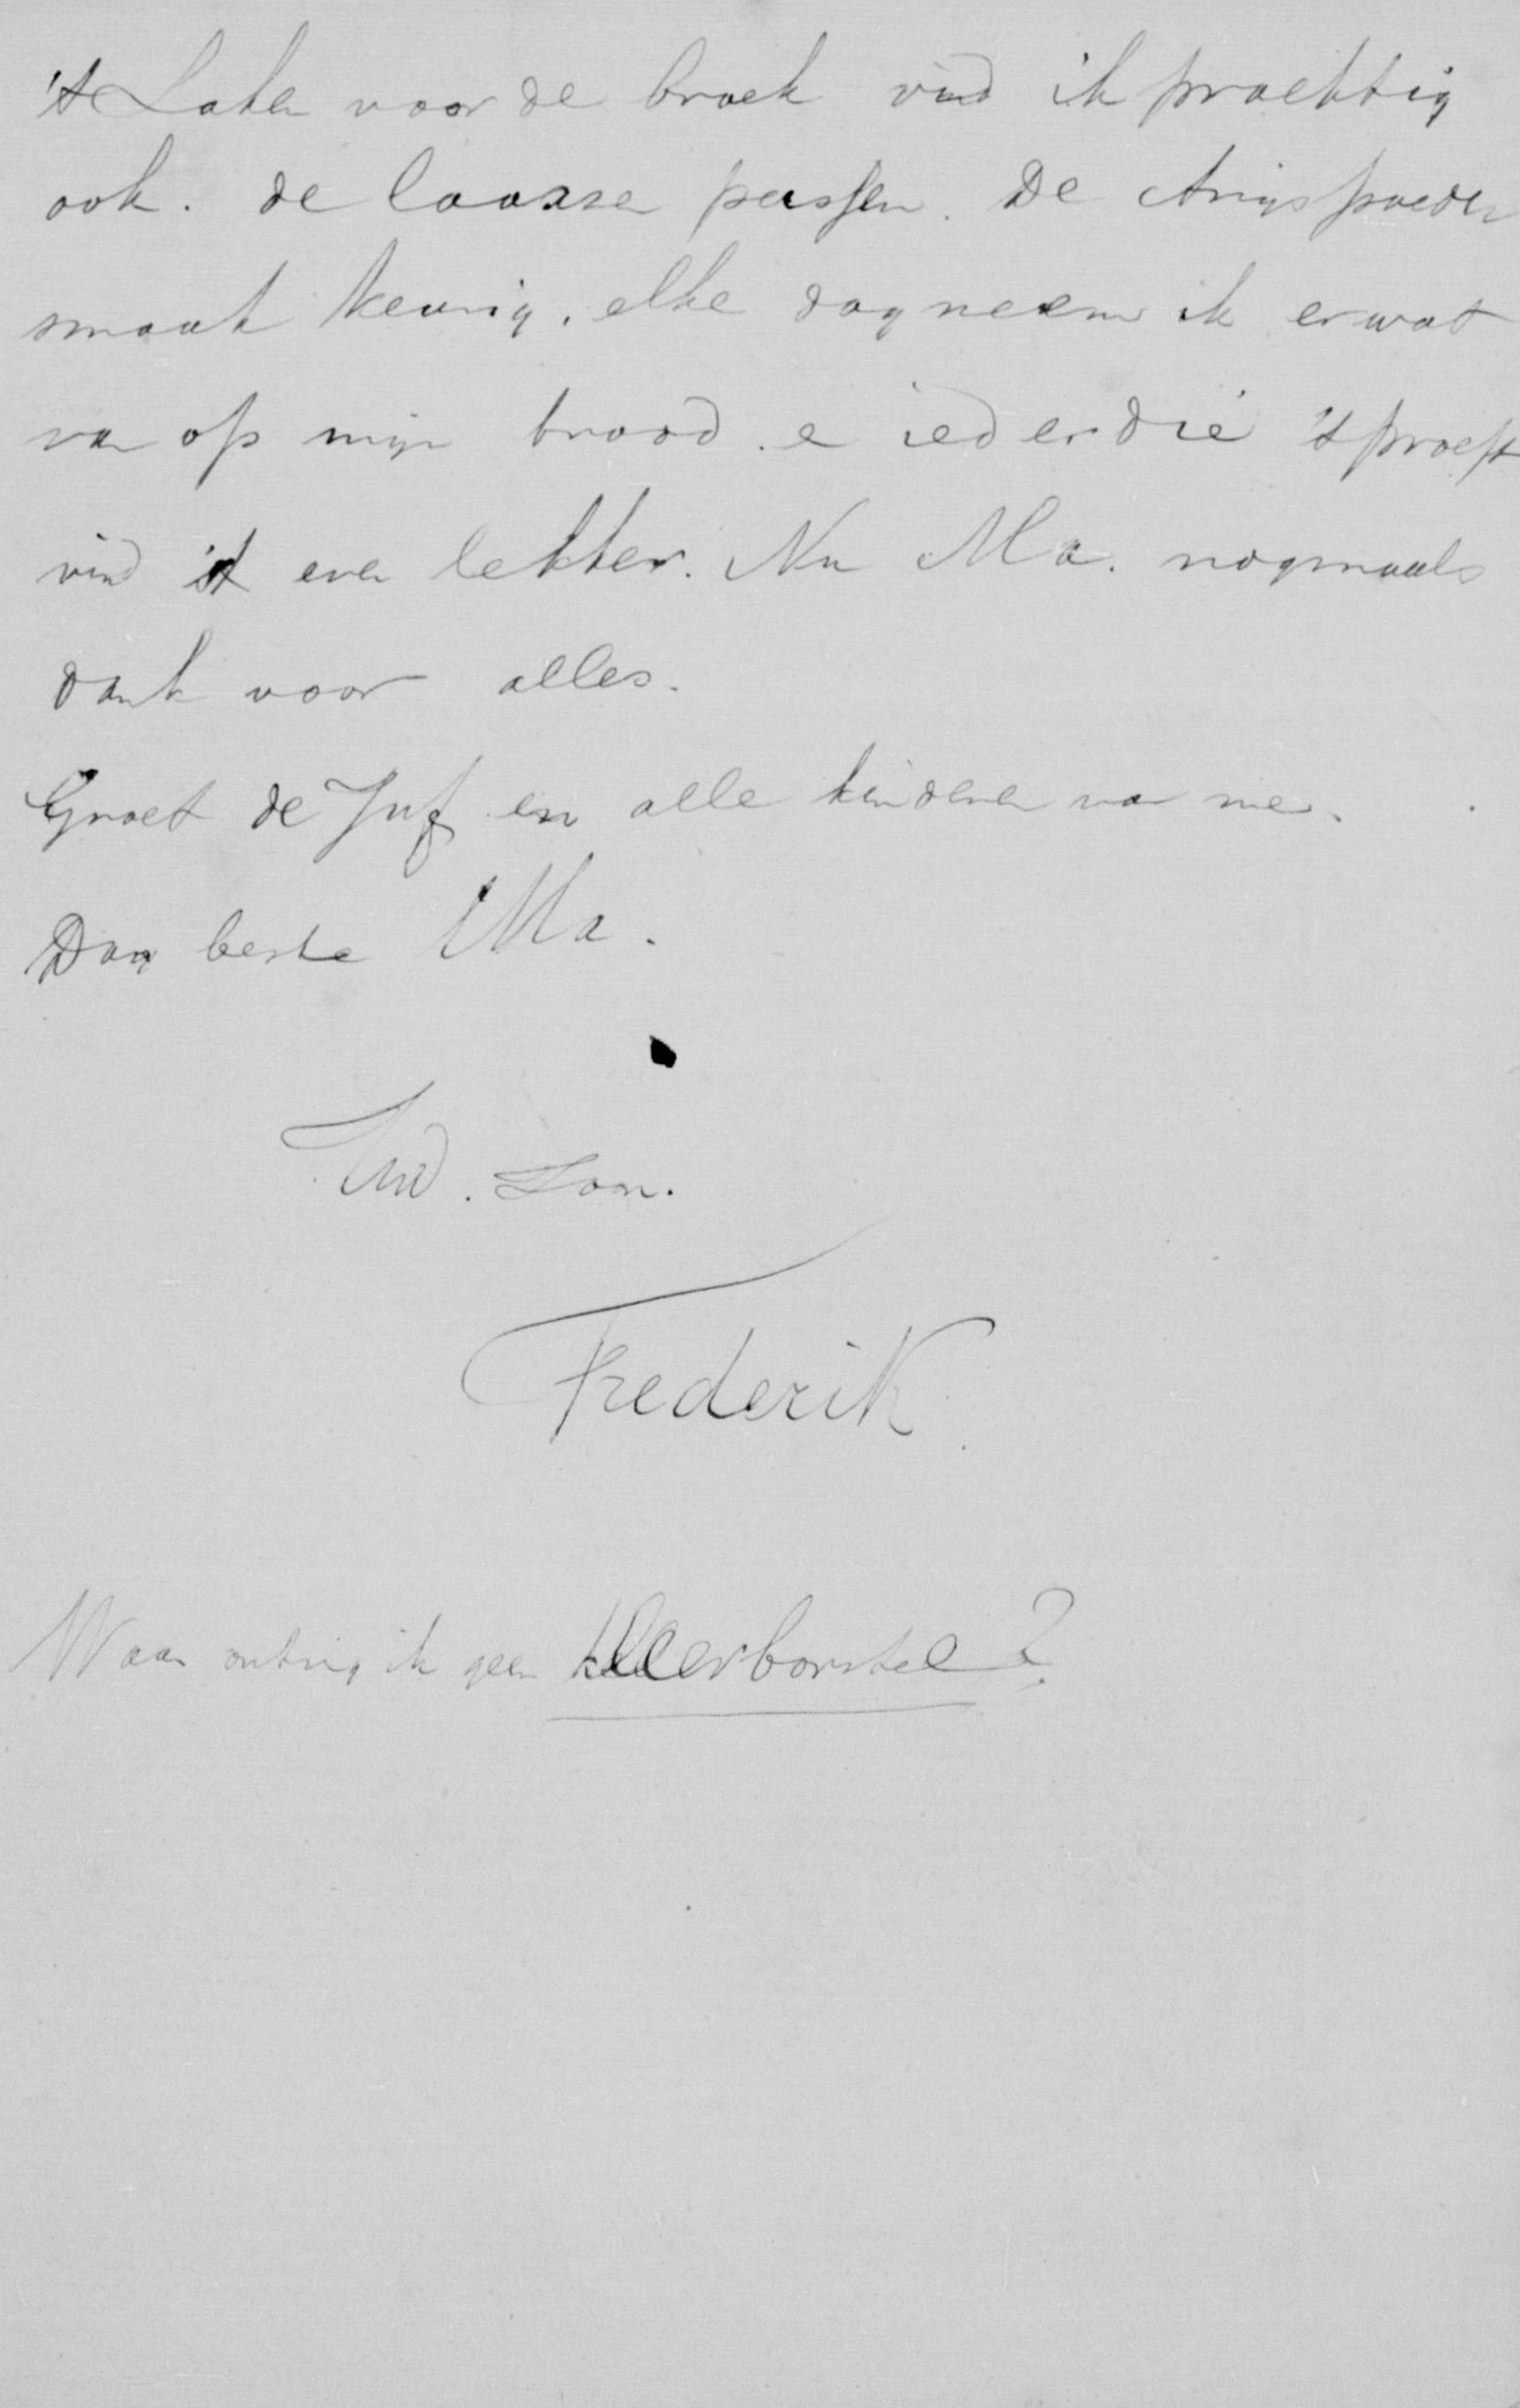 't Laken voor de broek vind ik prachtig
ook. de laarzen passen. De Anijspoeder
smaak keurig, elke dag neem ik er wat
van op mijn brood. en ieder die 't proeft
vind 't even lekker. Nu Ma. nogmaals
dank voor alles.
Groet de Juf en alle kinderen van me.
Dag beste Ma.
Uw. Zoon.
Frederik
Waar ontving ik geen kleerborstel?